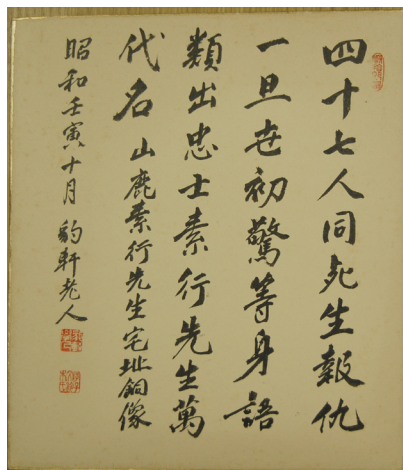 四十七人同死生報仇
一旦世初驚等身語
類出忠士素行先生萬
代名 山鹿素行先生宅址銅像
昭和壬寅十月 豹軒老人